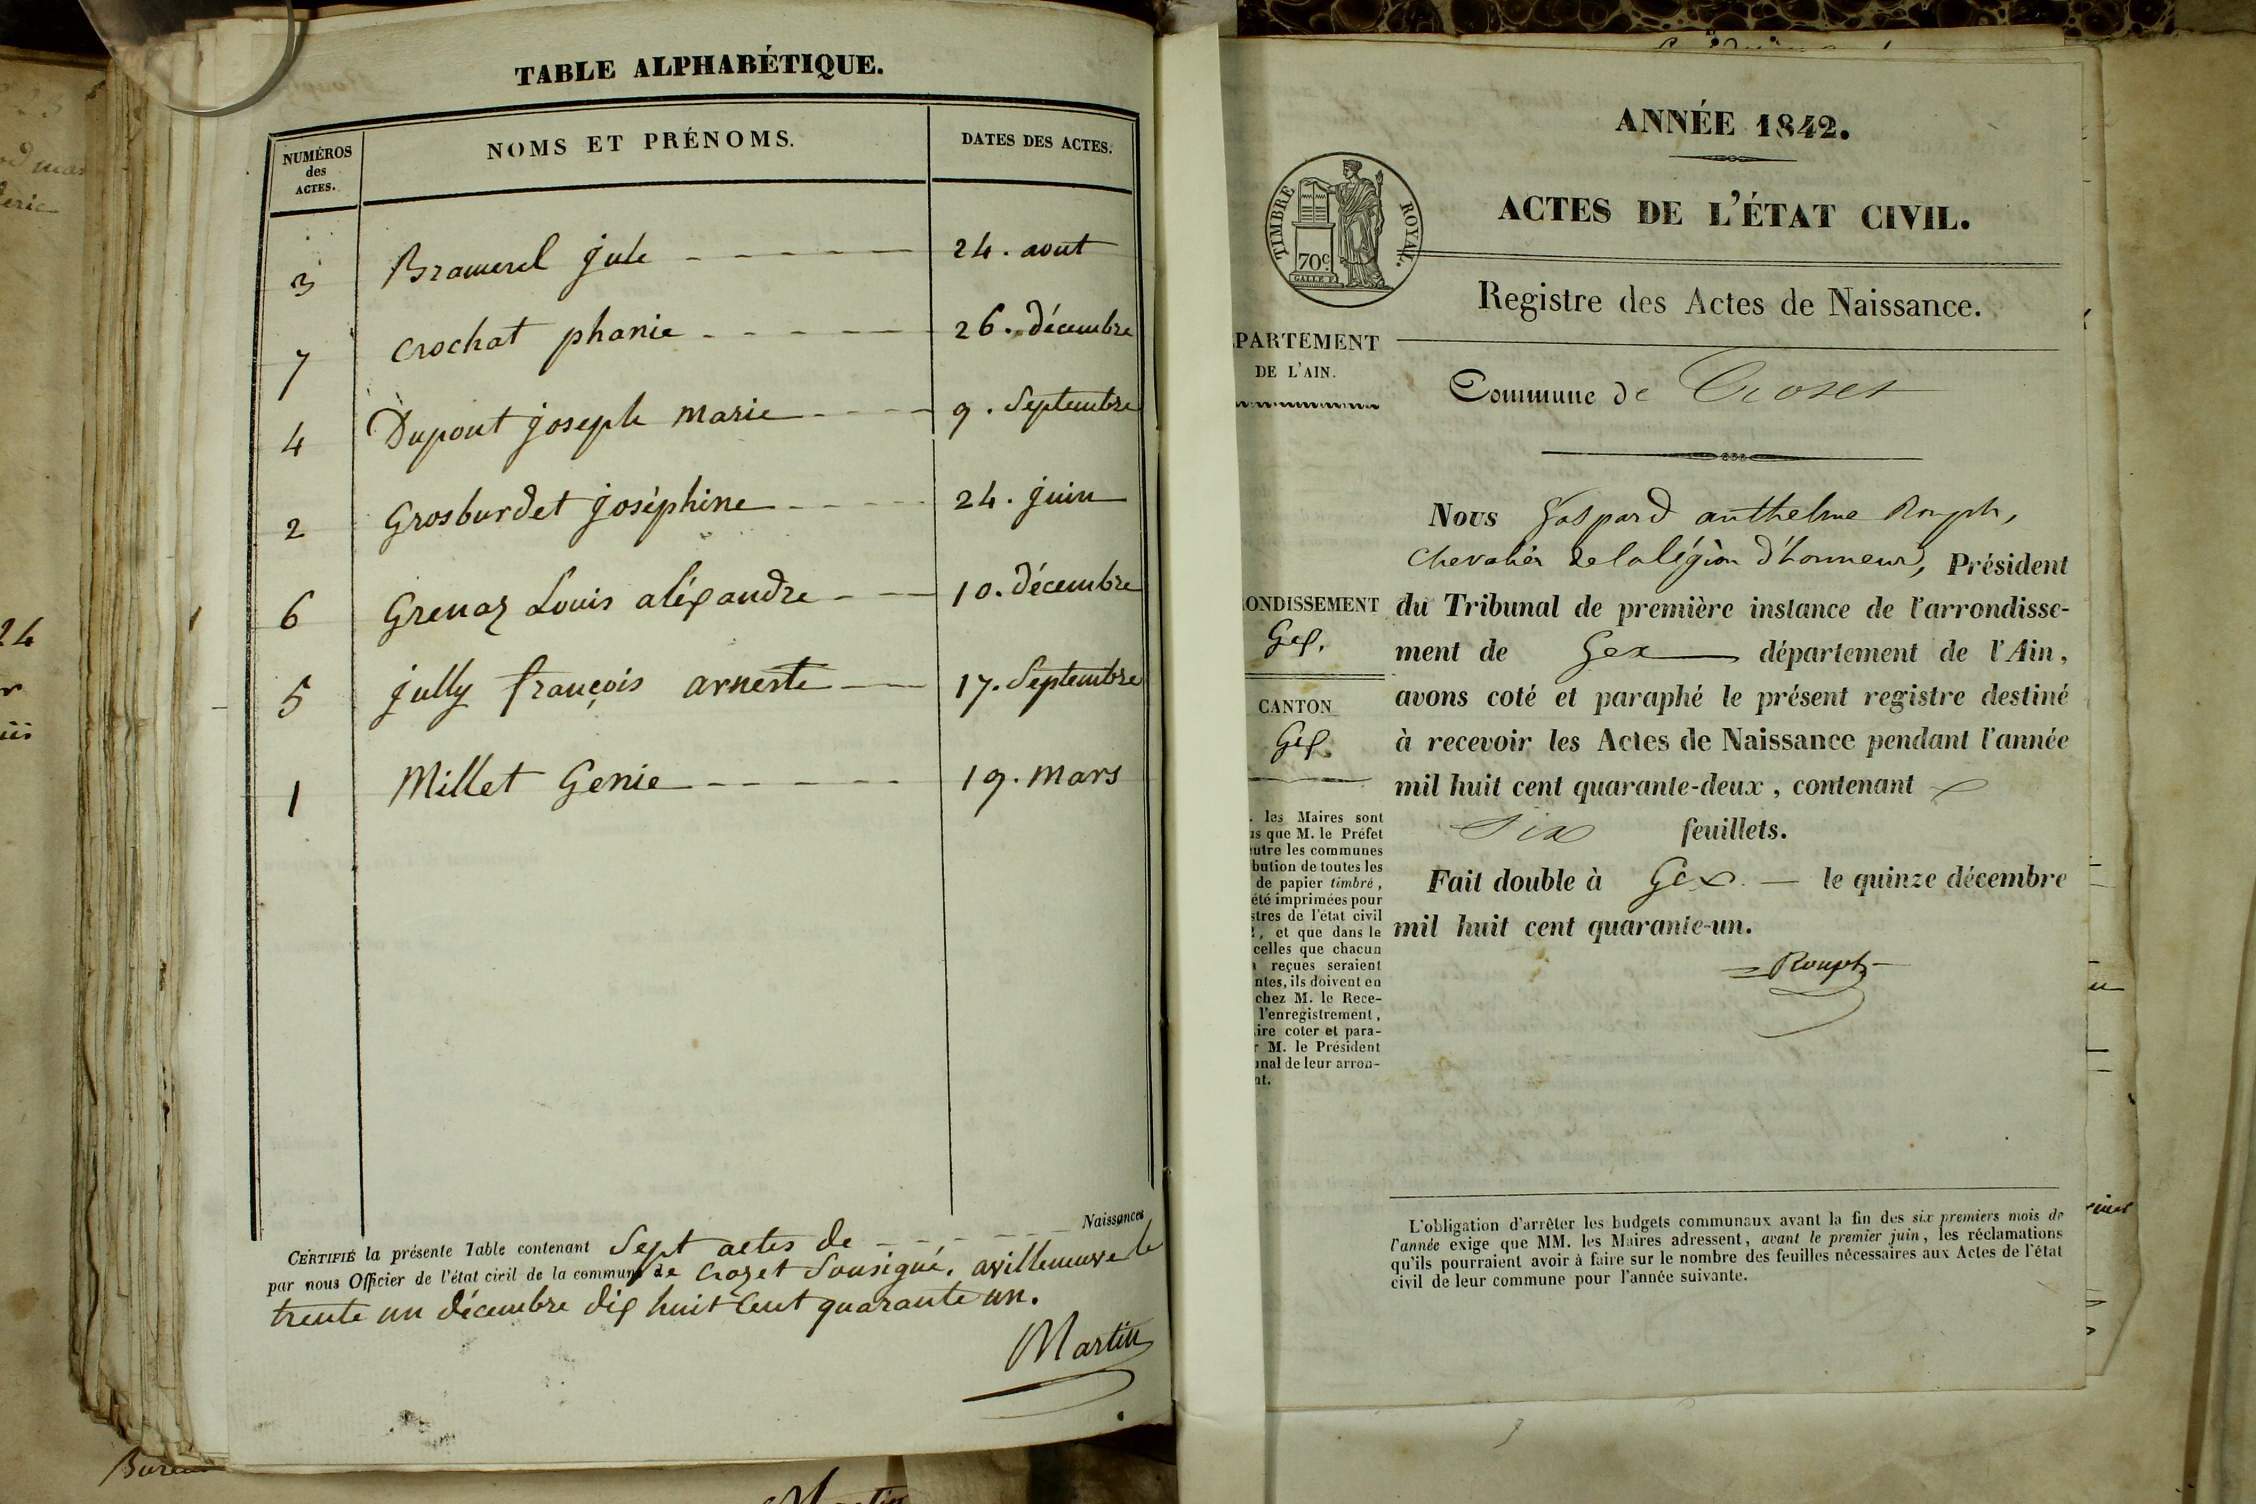 TABLE ALPHABÉTIQUE.
NUMÉROS des ACTES. NOMS ET PRÉNOMS. DATES DES ACTES.
3 Bramerel jule 24. aout
7 Crochat phanie 26. décembre
4 Dupont joseph marie 9. Septembre
2 Grosburdet joséphine 24. juin
6 Grenaz Louis aléxandre 10. décembre
5 jully françois arneste 17. Septembre
1 Millet Genie 19. mars
Naissances
CERTIFIÉ la présente Table contenant Sept actes de
par nous Officier de l'état civil de la commune de Crozet Sousigné. avilleneuve le
trente un décembre dix huit Cent quarante un.
Martin
24
ANNÉE 1842.
ACTES DE L'ÉTAT CIVIL.
TIMBRE ROYAL.
70c
Registre des Actes de Naissance.
PARTEMENT
DE L'AIN.
Commune de Crozet
Nous Gaspard anthelme Rouph,
chevalier de la légion d'honneur, Président
du Tribunal de première instance de l'arrondisse-
ment de Gex département de l'Ain,
avons coté et paraphé le présent registre destiné
à recevoir les Actes de Naissance pendant l'année
mil huit cent quarante-deux, contenant
six feuillets.
Fait double à Gex. le quinze décembre
mil huit cent quarante-un.
Rouph
ONDISSEMENT
Gex.
CANTON
Gex.
. les Maires sont
us que M. le Préfet
utre les communes
bution de toutes les
de papier timbré,
été imprimées pour
stres de l'état civil
, et que dans le
celles que chacun
reçues seraient
ntes, ils doivent en
chez M. le Rece-
l'enregistrement,
ire coter et para-
r M. le Président
onal de leur arron-
nt.
L'obligation d'arrêter les budgets communaux avant la fin des six premiers mois de
l'année exige que MM. les Maires adressent, avant le premier juin, les réclamations
qu'ils pourraient avoir à faire sur le nombre des feuilles nécessaires aux Actes de l'état
civil de leur commune pour l'année suivante.